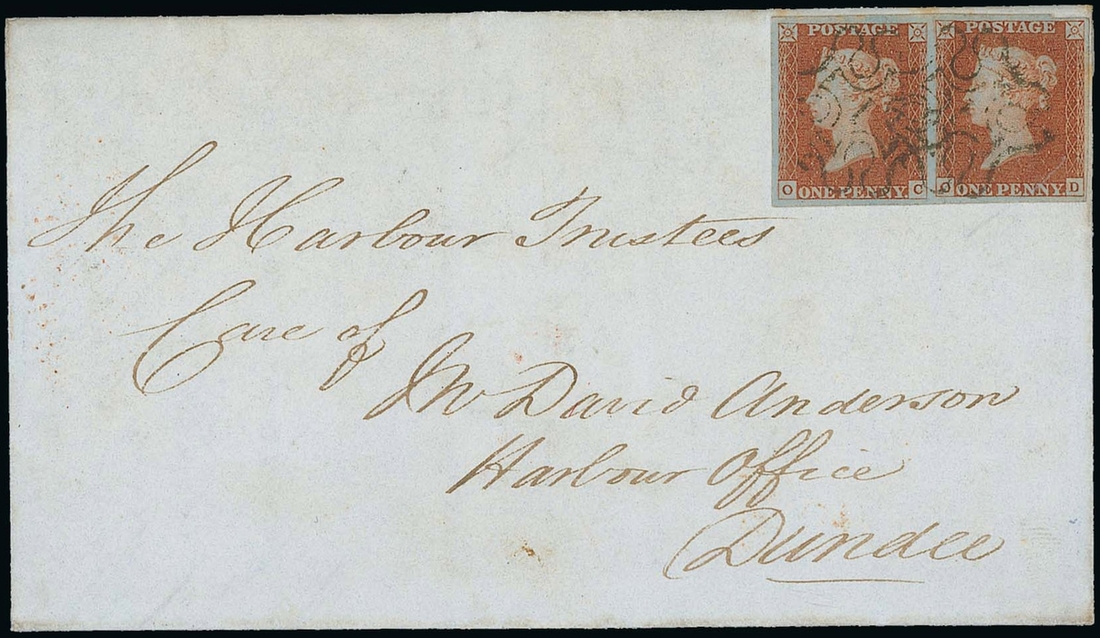 POSTAGE POSTAGE
O ONE PENNY C O ONE PENNY D
The Harbour Trustees
Care of
Mr David Anderson
Harbour Office
Dundee